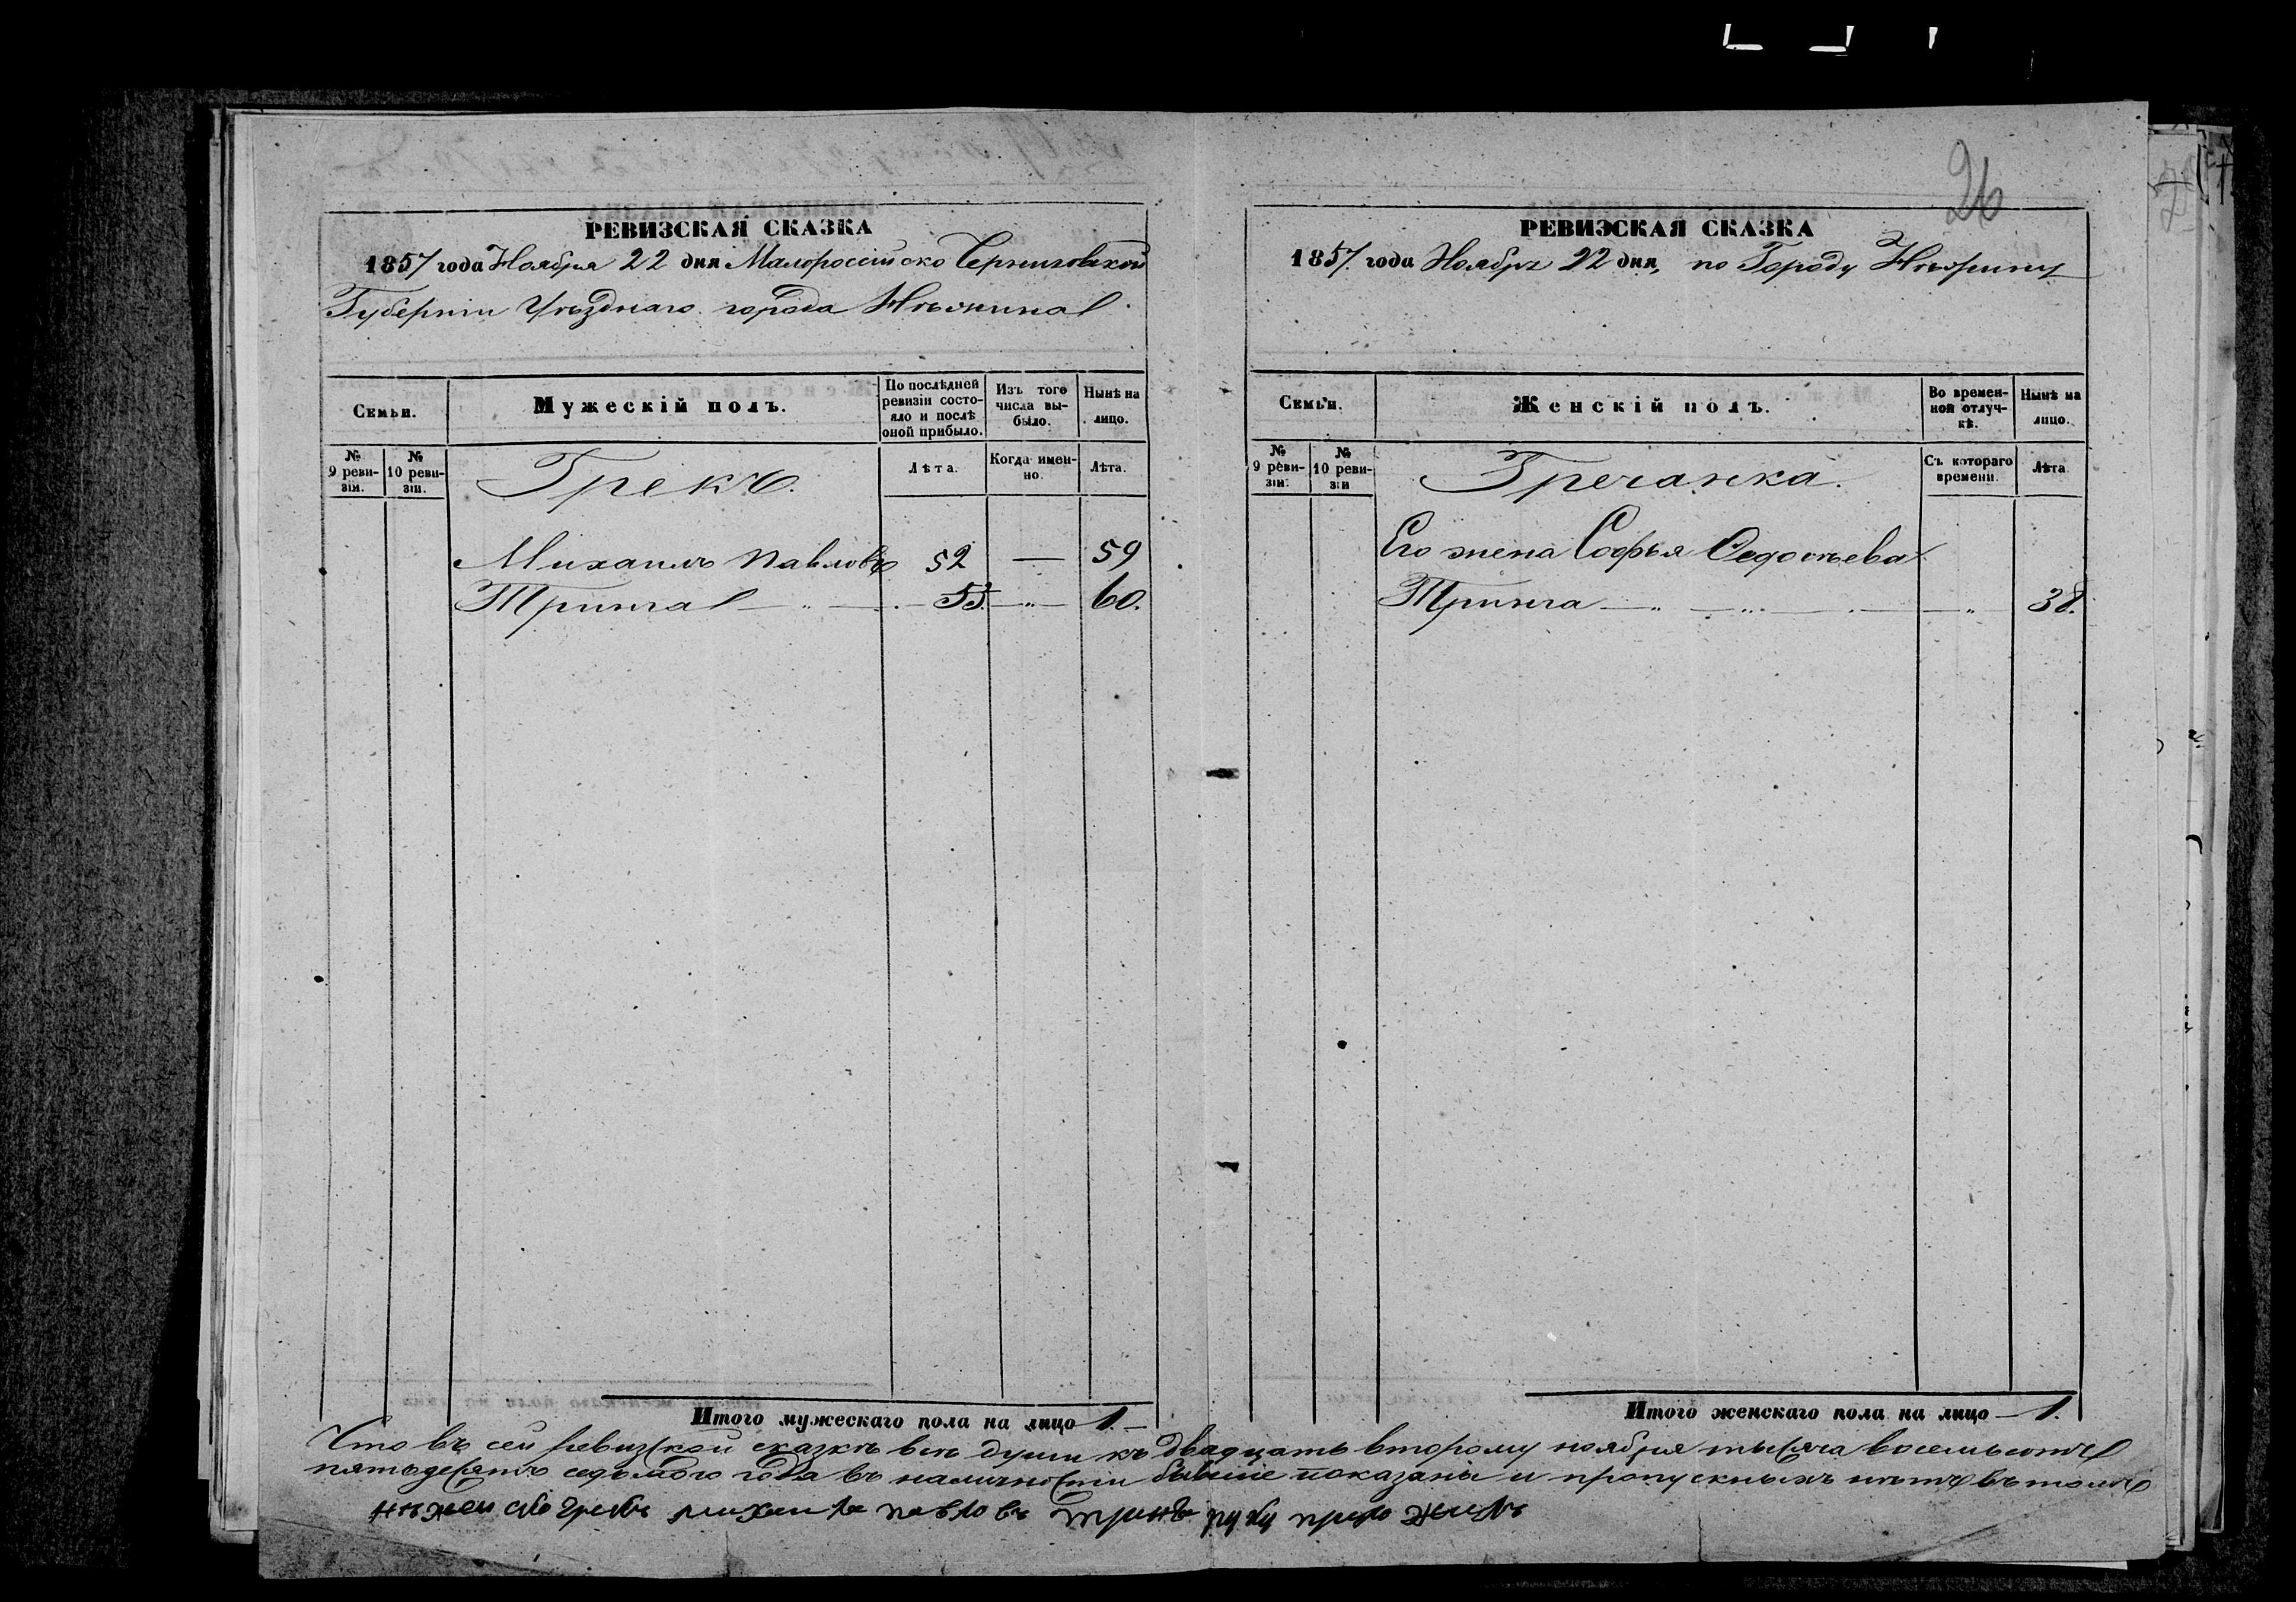 26
РЕВИЗСКАЯ СКАЗКА
1857 года Ноября 22 дня Малороссійско Черниговской
Губерніи Уѣзднаго города Нѣжина
Семьи.
Мужескій полъ.
По послѣдней ревизіи состояло и послѣ оной прибыло.
Изъ того числа выбыло.
Нынѣ на лицо.
№ 9 ревизіи.
№ 10 ревизіи.
Грекъ.
Лѣта.
Когда именно.
Лѣта.
Михаилъ Павловъ 52 — 59
Тринга — „ — 53 — „ — 60.
Итого мужескаго пола на лицо 1.
РЕВИЗСКАЯ СКАЗКА
1857 года Ноября 22 дня, по Городу Нѣжину
Семьи.
Женскій полъ.
Во временной отлучкѣ.
Нынѣ на лицо.
№ 9 ревизіи.
№ 10 ревизіи
Гречанка.
Съ котораго времени.
Лѣта
Его жена Софья Федосѣева
Тринга — „ — „ — „ — 38.
Итого женскаго пола на лицо — 1.
Что въ сей ревизской сказкѣ всѣ души къ двадцать второму ноября тысяча восемьсотъ
пятьдесятъ седьмого года въ наличности бывшіе показаны и пропускныхъ нѣтъ въ томъ
грекъ михаилъ павловъ тринга руку приложилъ